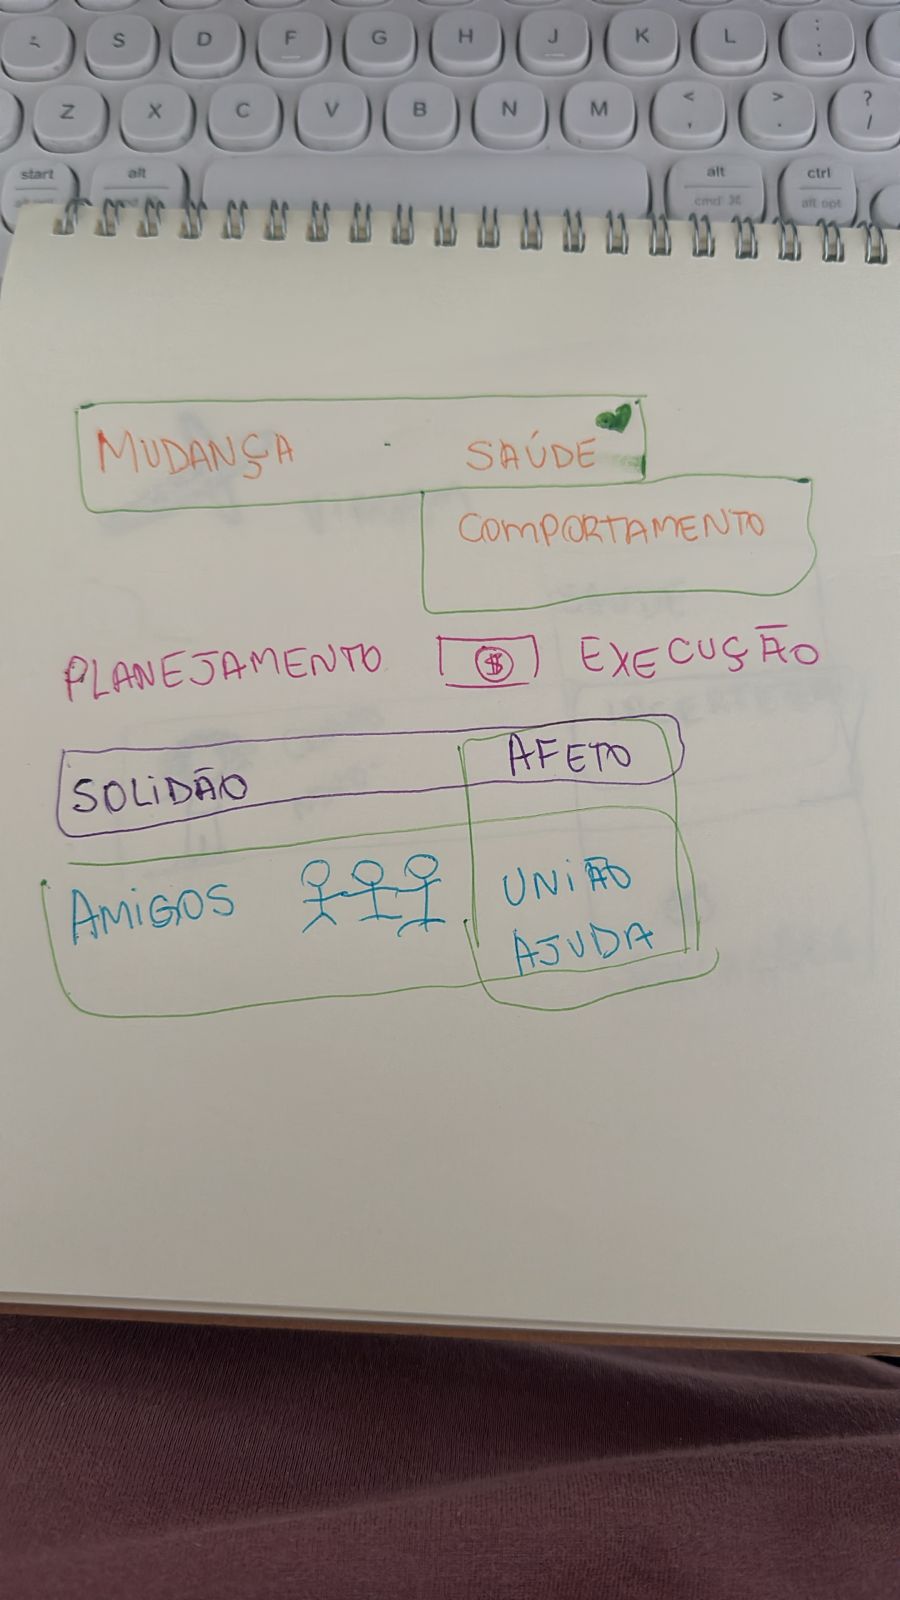 S D F G H J K L : ;
Z X C V B N M < , > . ? /
start alt alt ctrl
cmd ⌘ alt opt
MUDANÇA - SAÚDE
COMPORTAMENTO
PLANEJAMENTO $ EXECUÇÃO
SOLIDÃO AFETO
AMIGOS UNIÃO
AJUDA